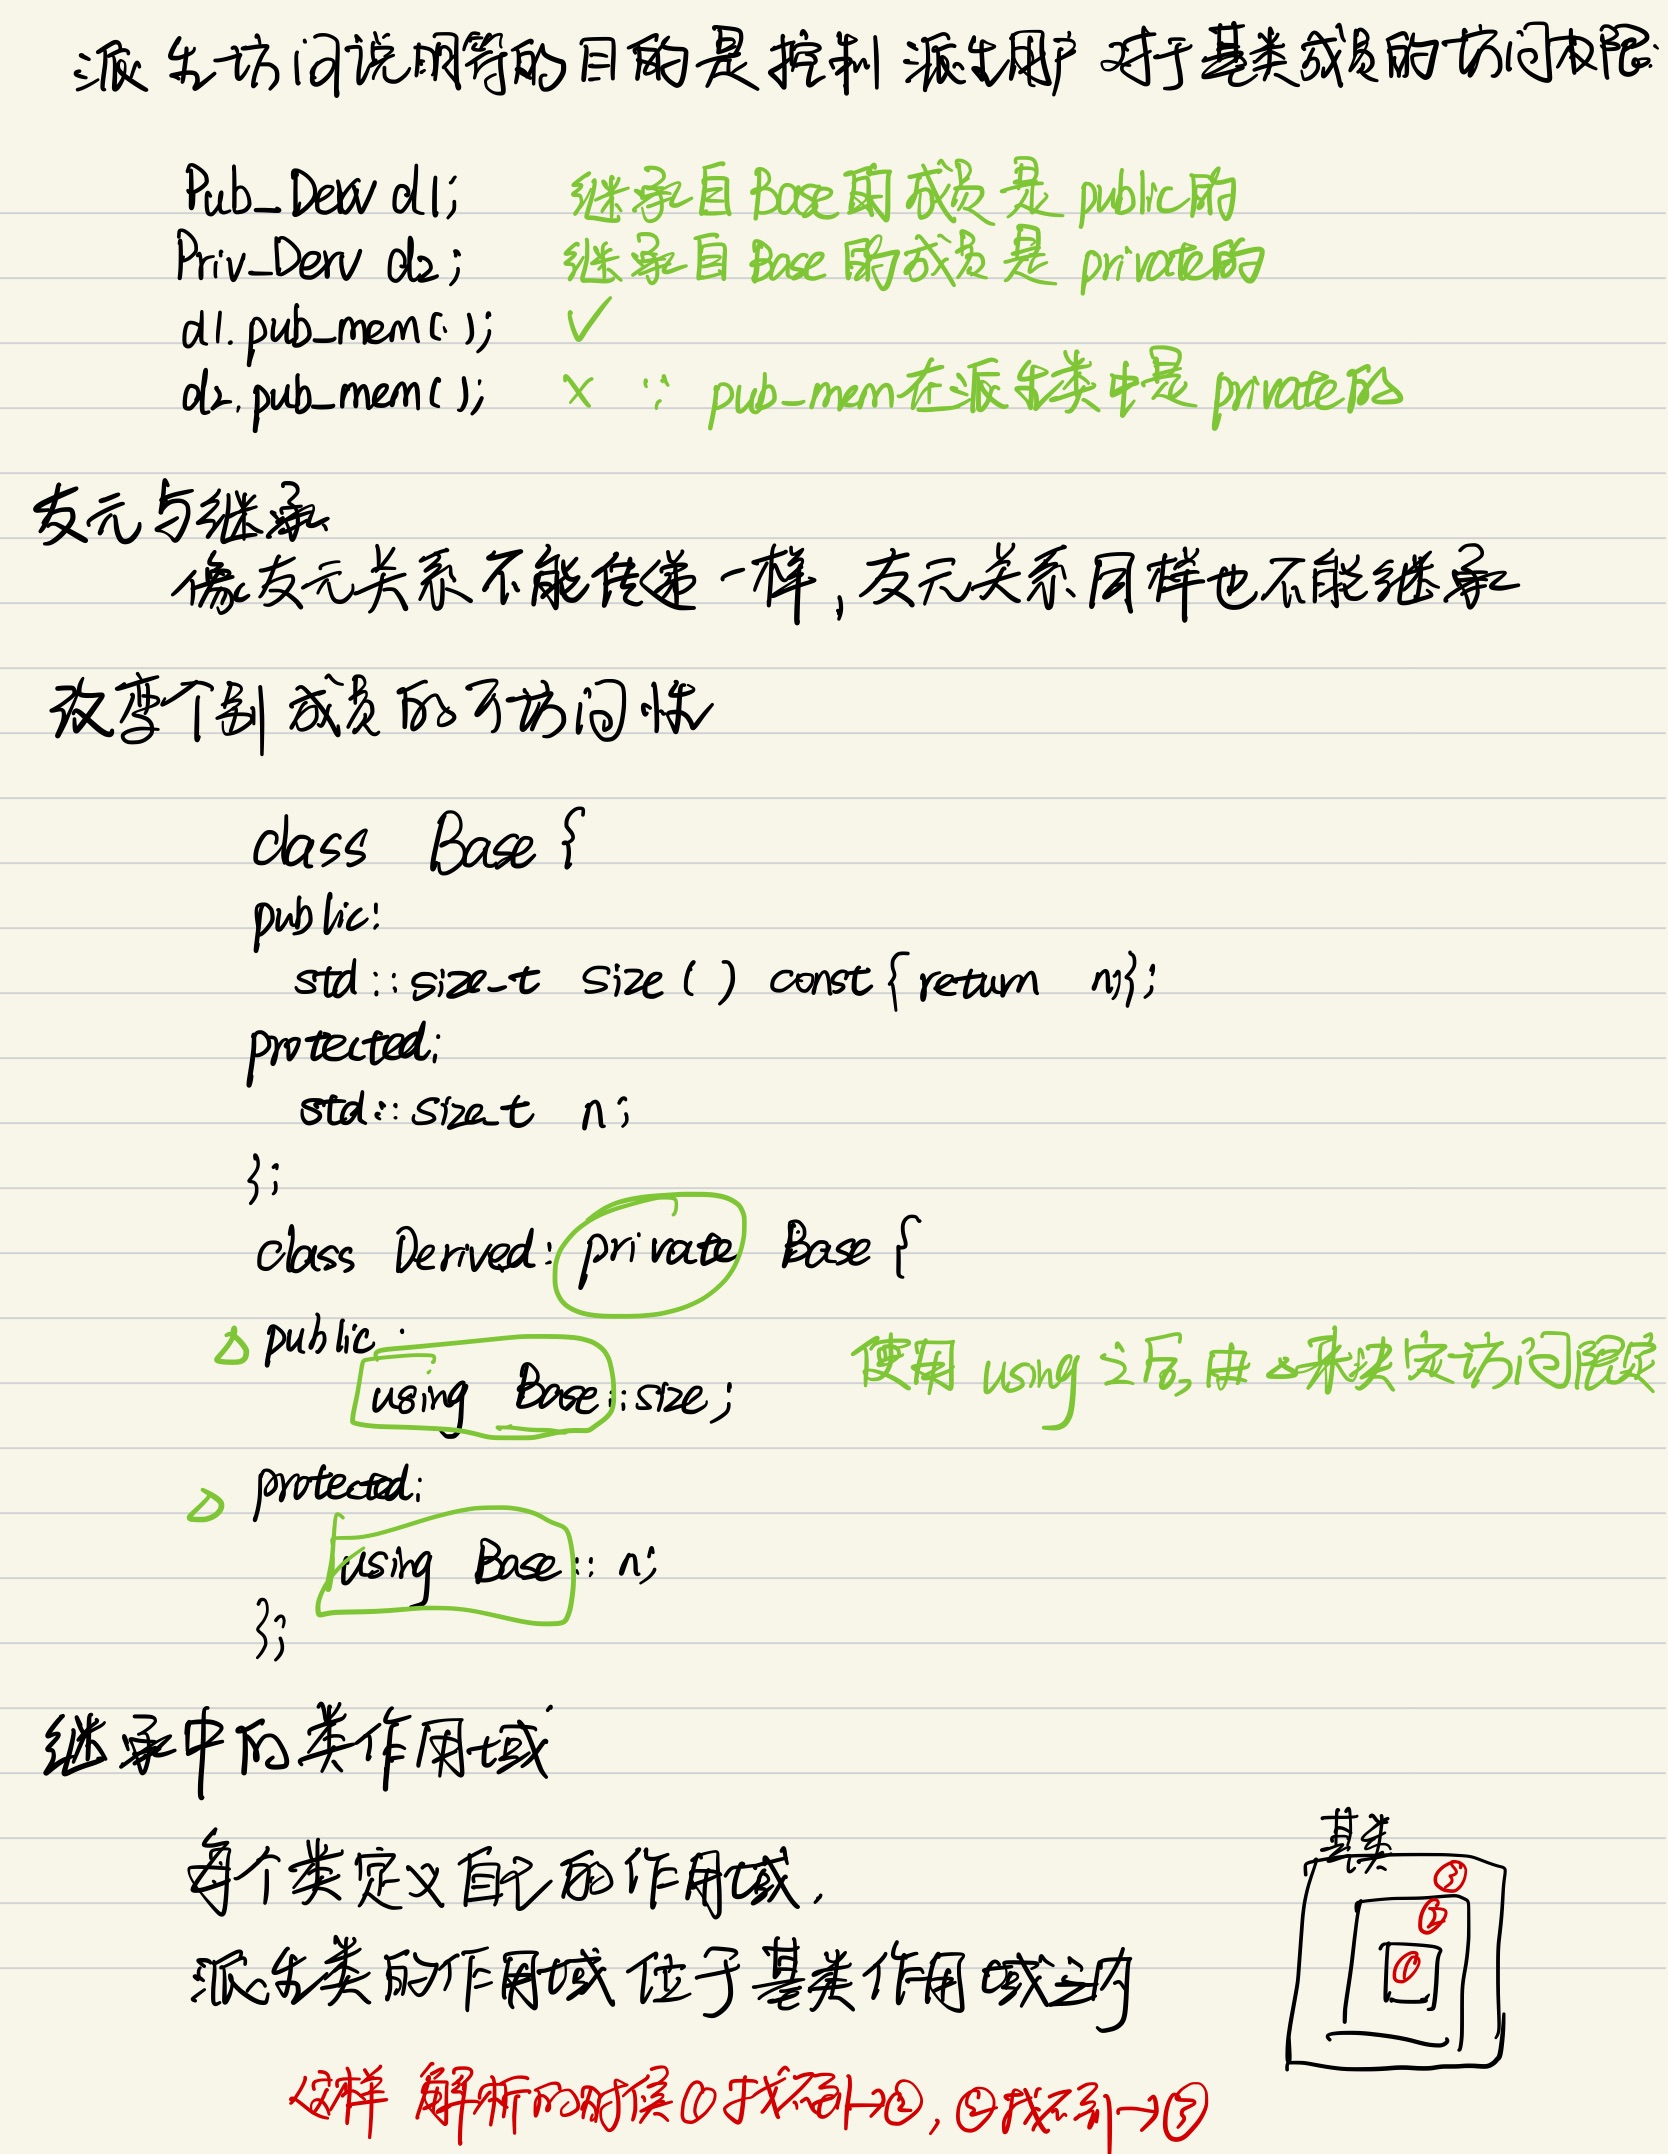 派生访问说明符的目的是控制派生用户对于基类成员的访问权限.
Pub_Derv d1; 继承自Base的成员是public的
Priv_Derv d2; 继承自Base的成员是private的
d1.pub_mem(); ✓
d2.pub_mem(); × ∵ pub_mem在派生类中是private的
友元与继承
像友元关系不能传递一样,友元关系同样也不能继承
改变个别成员的可访问性
class Base {
public:
std::size_t size() const{return n;};
protected:
std::size_t n;
};
class Derived: private Base {
△ public: 使用using之后,由△来决定访问限定
using Base::size;
△ protected:
using Base::n;
};
继承中的类作用域
每个类定义自己的作用域.
派生类的作用域位于基类作用域之内
基类
③
②
①
这样解析的时候①找不到→②,②找不到→③